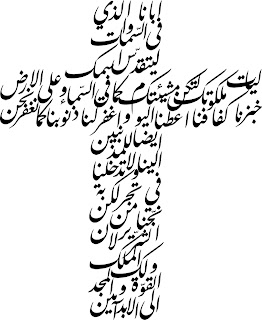 ابانا والذي
في السّمات
ليتقدّس اسمك
ليات ملكوتك لتكن مشيئتك كما في السماء وعلى الارض
خبزنا كفافنا اعطنا اليوم واغفر لنا ذنوبنا كما نغفر نحن
ايضا للمذنبين
الينا ولا تدخلنا
في تجربة
لكن
نجنا من
الشرير لان
لك الملك
و القوة و المجد
الى الابد آمين